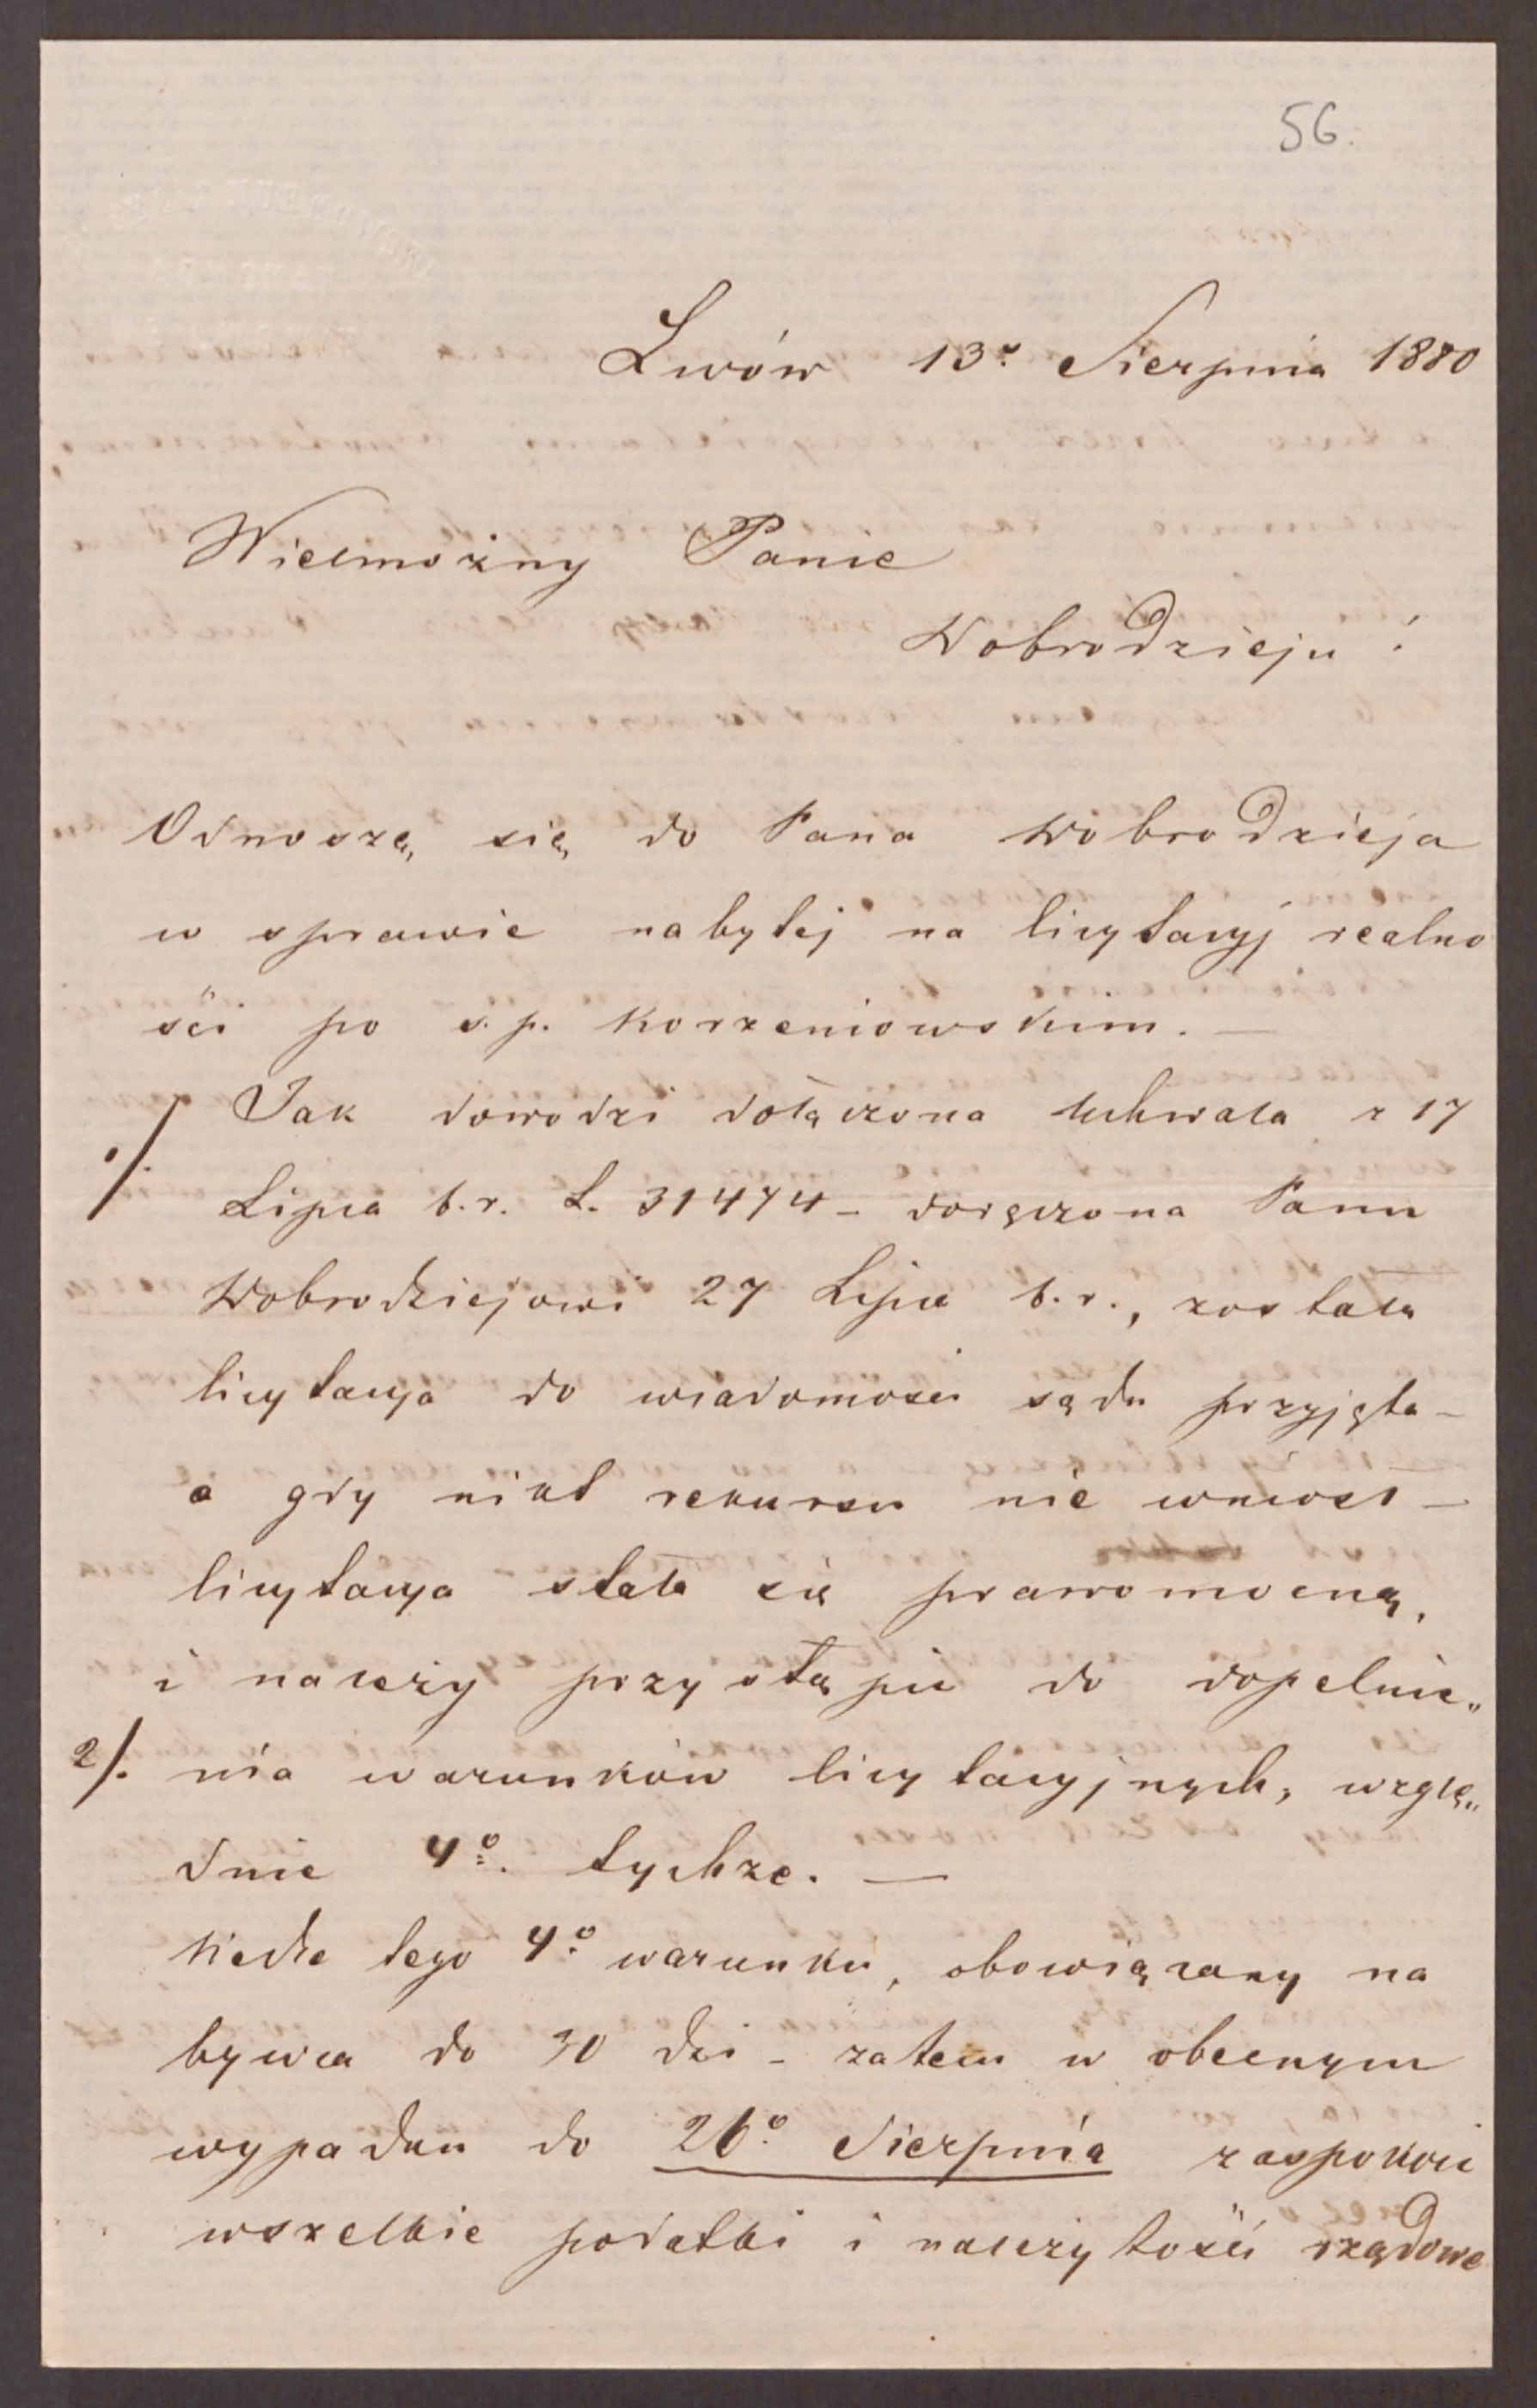 56.
Lwów 13º Sierpnia 1880
Wielmożny Panie
Dobrodzieju!
Odnoszę się do Pana Dobrodzieja
w sprawie nabytej na licytacyj realno
ści po ś.p. Korzeniowskim. —
1/. Jak dowodzi dołączona uchwała z 17
Lipca b.r. L. 31474 – doręczona Panu
Dobrodziejowi 27 Lipca b.r., została
licytacya do wiadomości sądu przyjęta –
a gdy nikt rekursu nie wniosł –
licytacya stała się prawomocną,
i należy przystąpić do dopełnie„
2/. nia warunków licytacyjnych, wzglę„
dnie 4º. tychże. —
Wedle tego 4º warunku, obowiązany na
bywca do 30 dni – zatem w obecnym
wypadku do 26º Sierpnia zaspokoić
wszelkie podatki i należytości rządowe